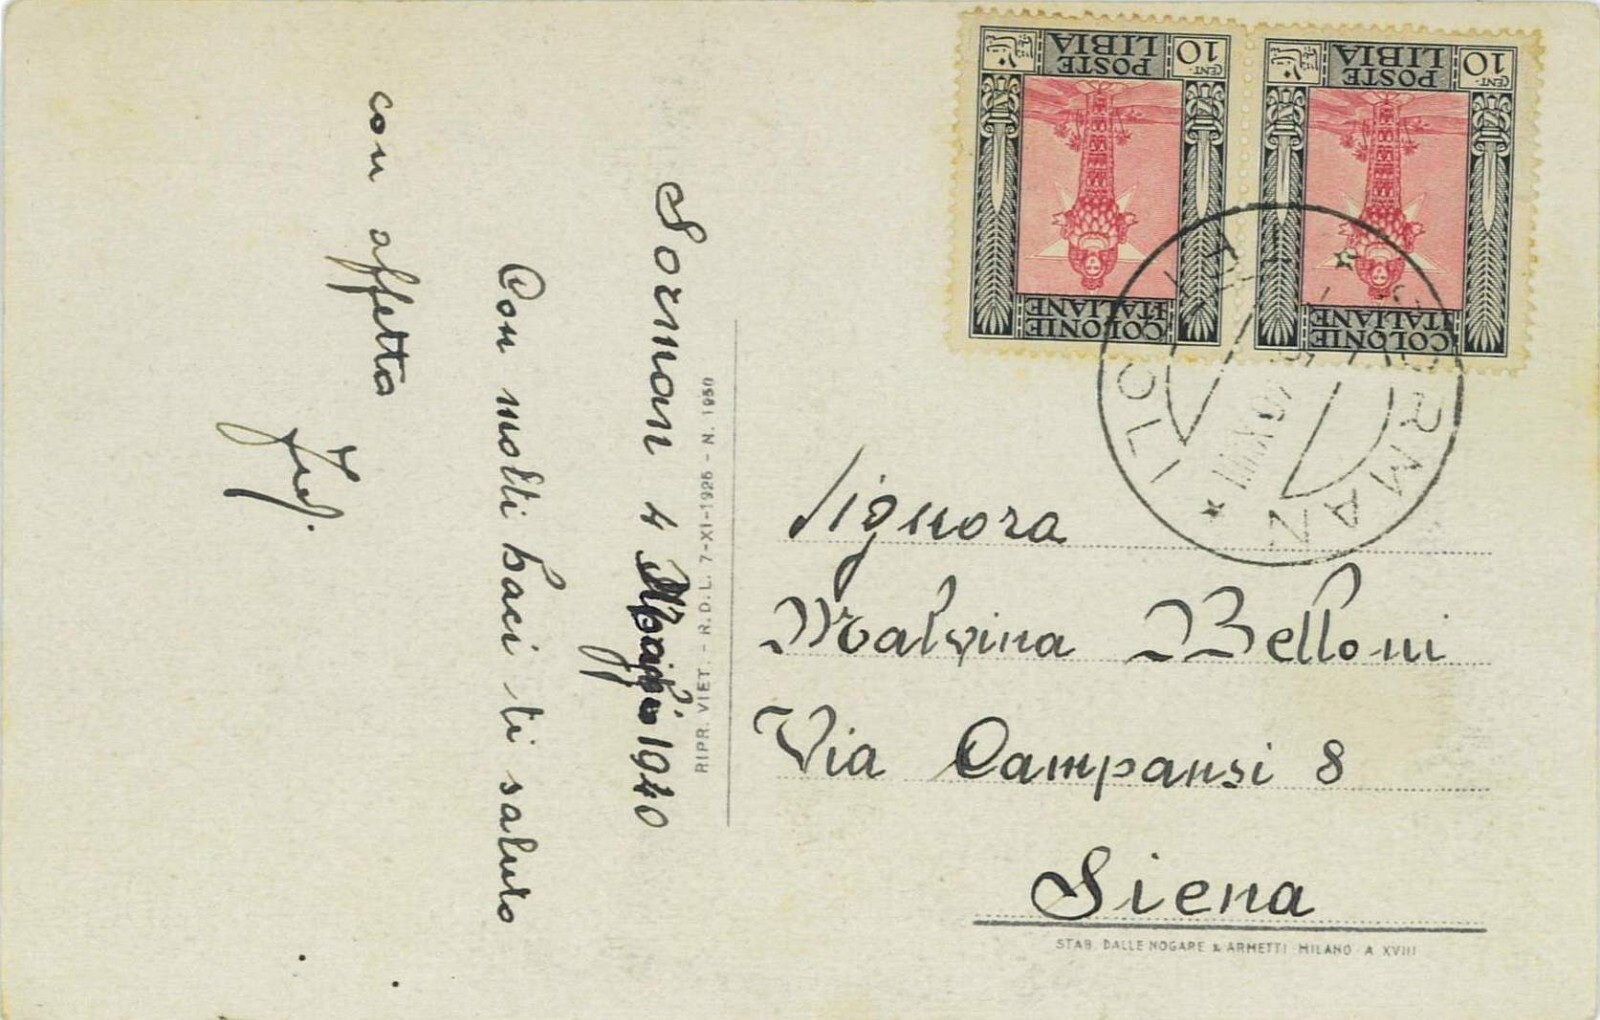 Sorman 4 Maggio 1940
Con molti baci ti saluto
con affetto
RIPR. VIET. - R.D.L. 7-XI-1926 - N. 1950
COLONIE
ITALIANE
10
CENT.
POSTE
LIBIA
COLONIE
ITALIANE
10
CENT.
POSTE
LIBIA
SORMAN
Signora
Malvina Belloni
Via Campansi 8
Siena
STAB. DALLE NOGARE & ARMETTI - MILANO - A XVIII